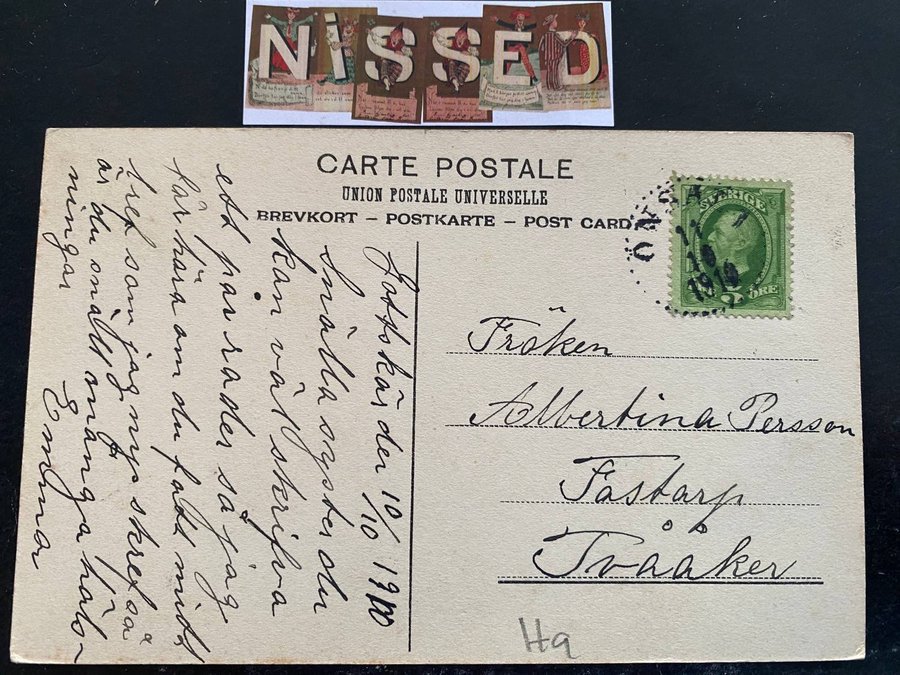 NiSSED
CARTE POSTALE
UNION POSTALE UNIVERSELLE
BREVKORT – POSTKARTE – POST CARD
ONSA
11
10
1910
SVERIGE
ÖRE
Fröken
Albertina Persson
Fastarp
Tvååker
Ha
Gottskär den 10/10 1910
Snälla syster du
kan väl skrifva
ett par rader så jag
får höra om du fått mitt
bref som jag nys skref så
är du snäll många häls-
ningar
Emma